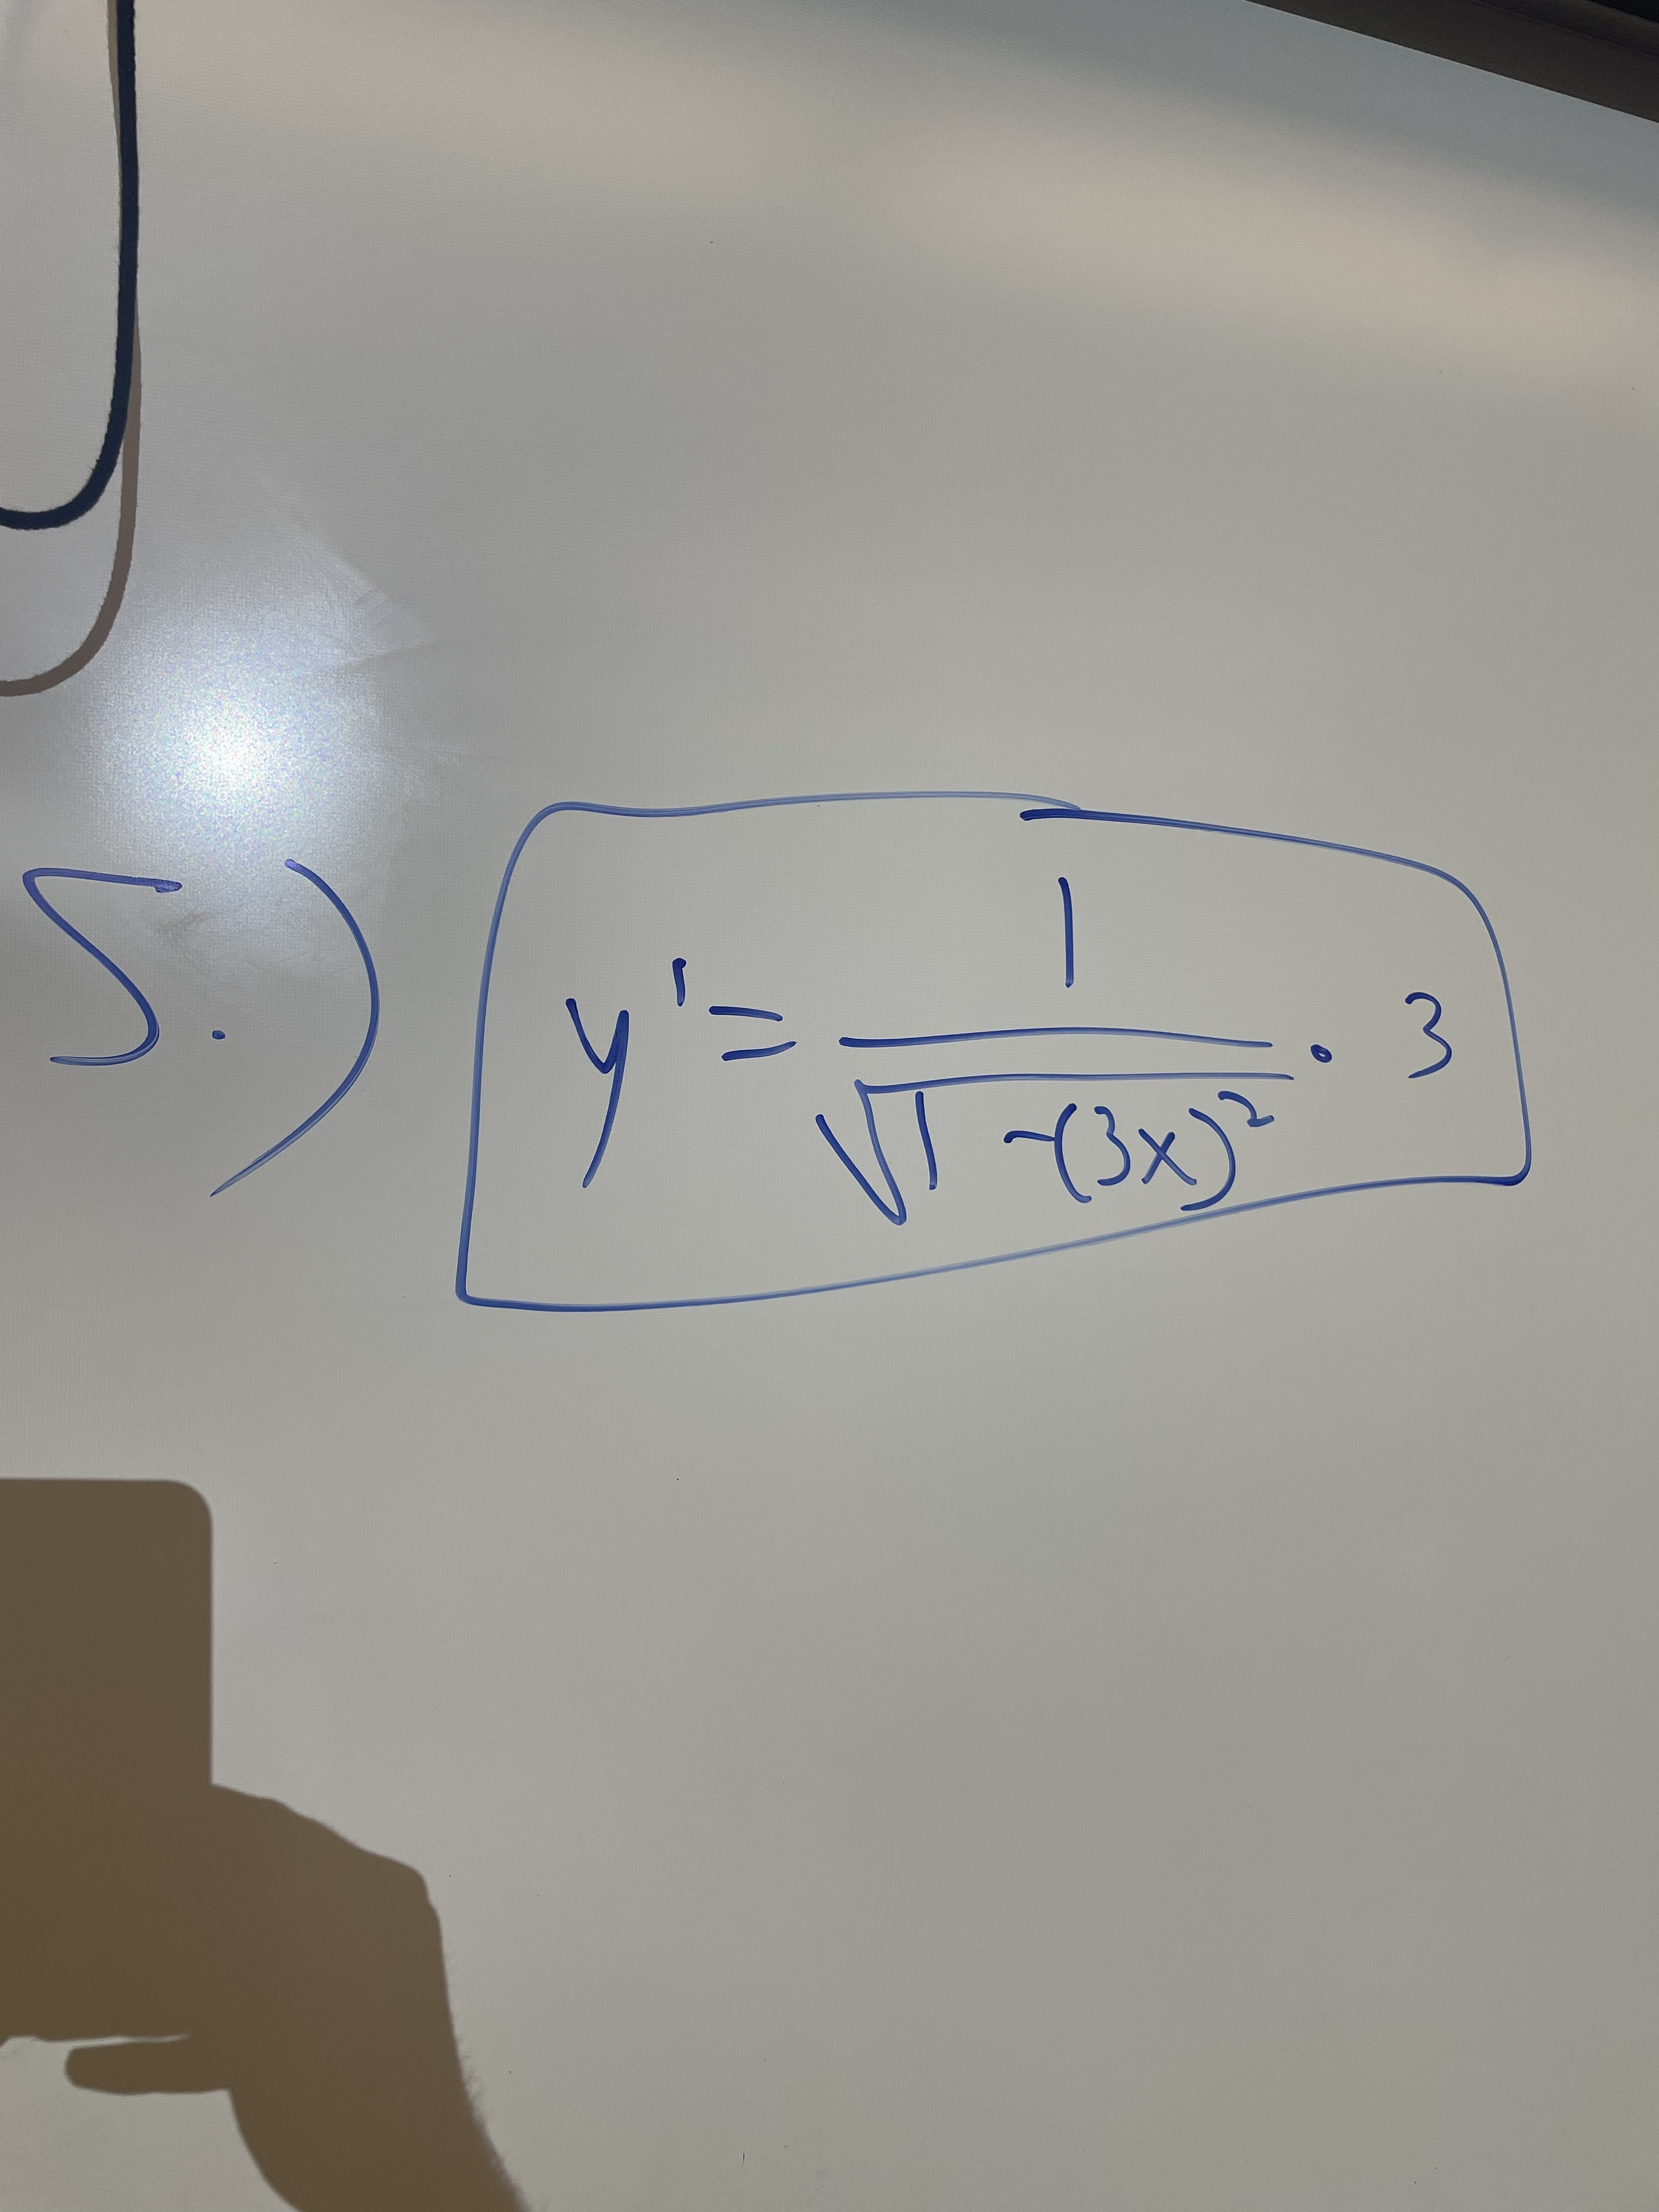 5.) y' = 1/√(1 -(3x)²) · 3